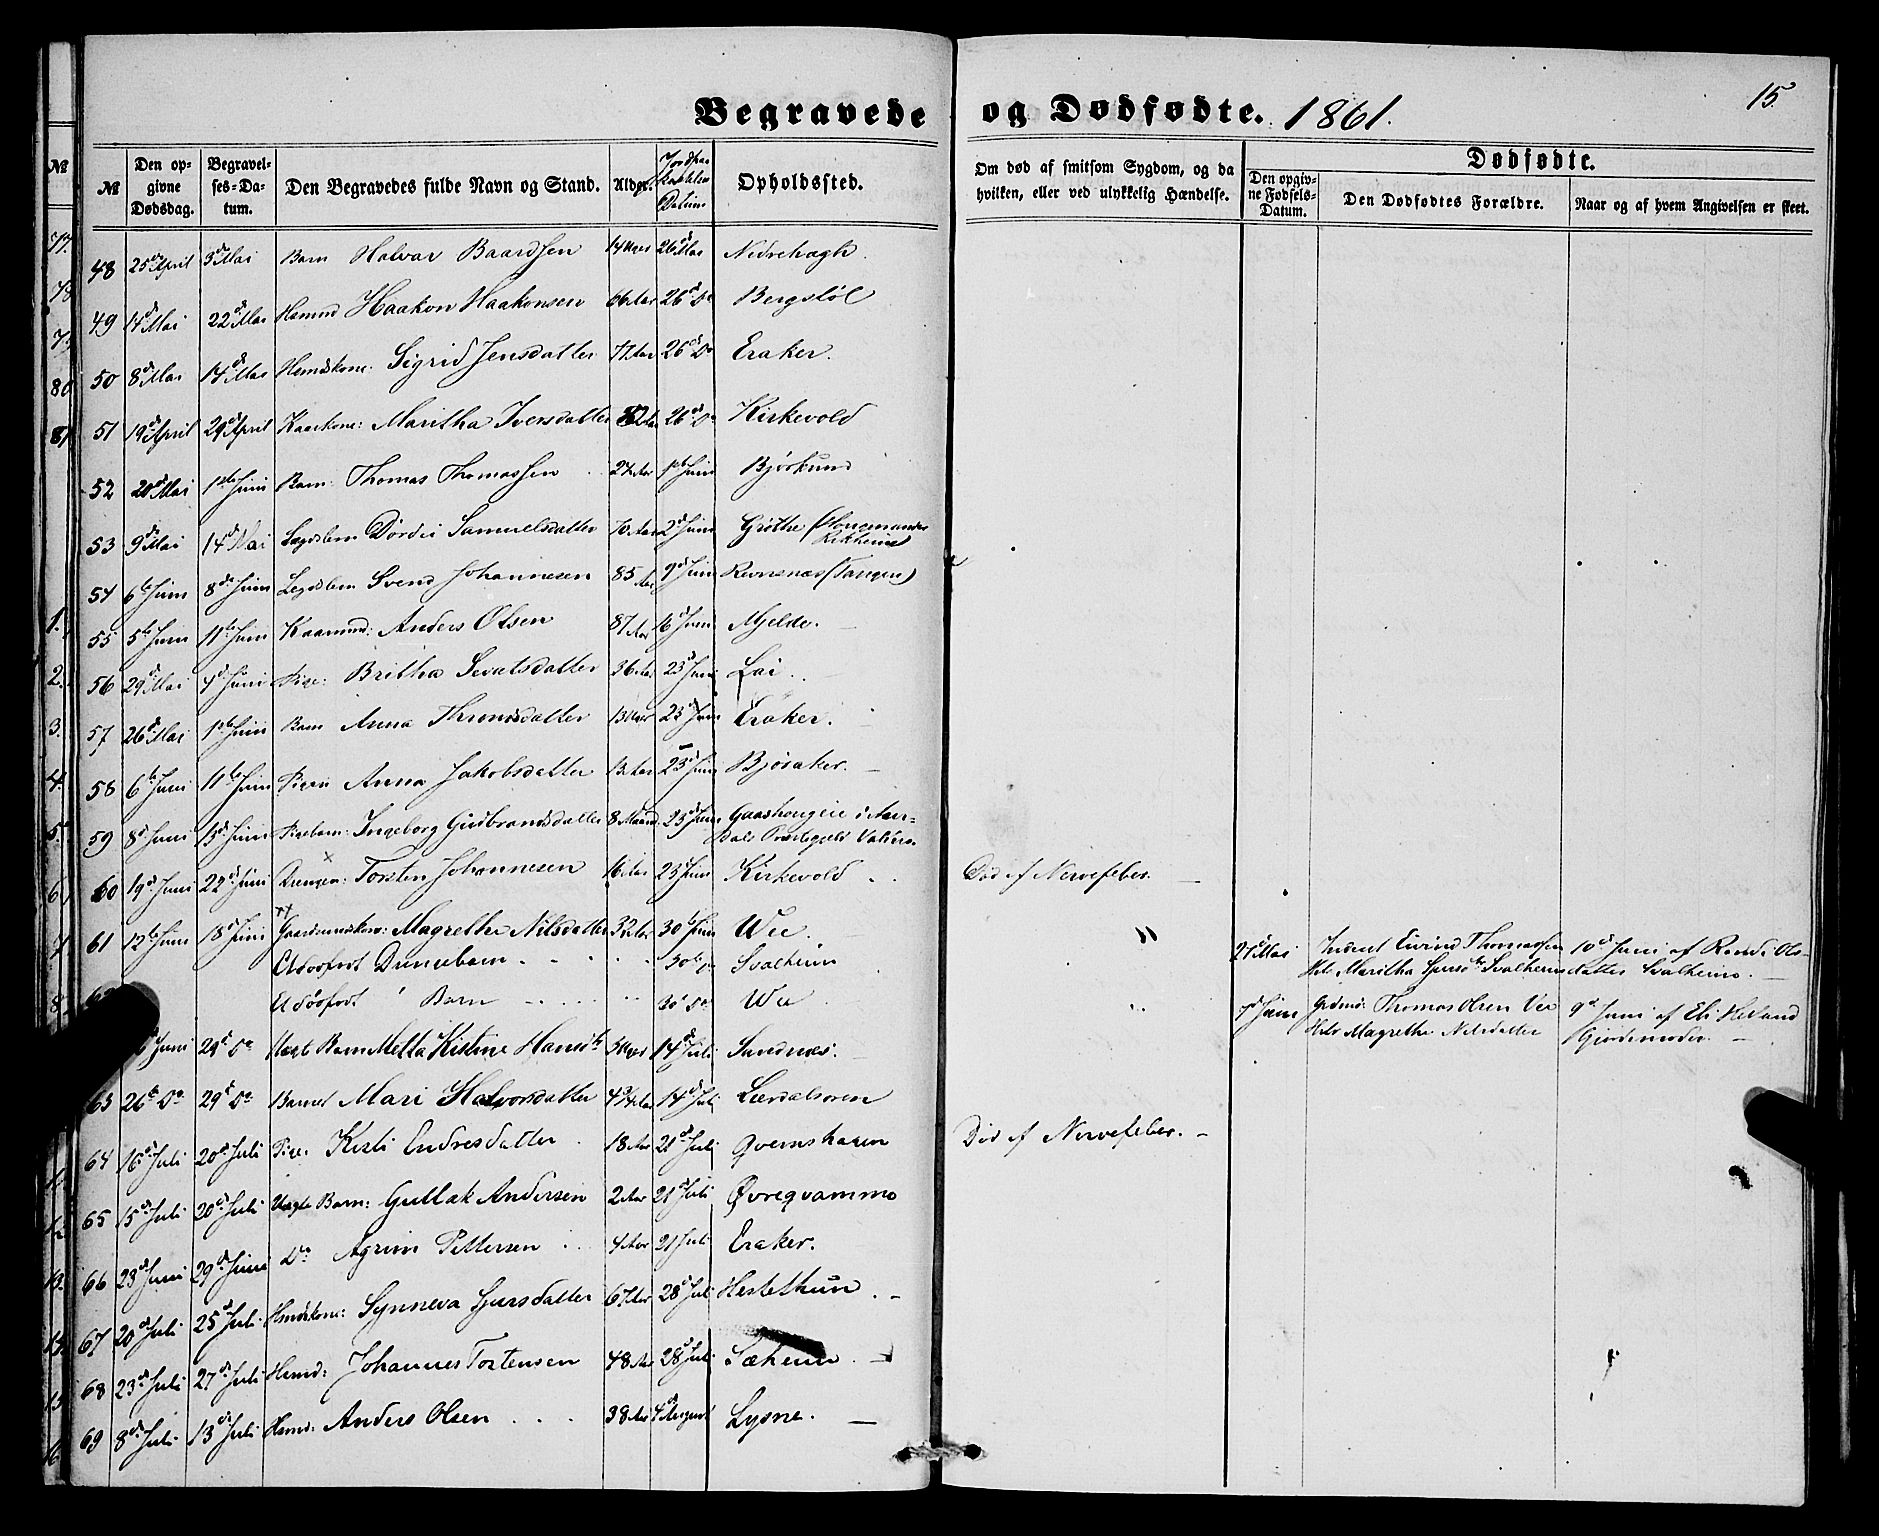 Begravede og Dødfødte. 1861. 15
№ Den opgivne Dødsdag. Begravelses-Datum. Den Begravedes fulde Navn og Stand. Alder. Jordpaakastelses Datum Opholdssted. Om død af smitsom Sygdom, og da hvilken, eller ved ulykkelig Hændelse. Dødfødte.
Den opgivne Fødsels-Datum. Den Dødfødtes Forældre. Naar og af hvem Angivelsen er skeet.
48 25de April 3d Mai Barn Halvar Baardsen 14 Uger 26d Mai Nedrehægh.
49 14d Mai 22d Mai Hsmnd Haakon Haakonsen 66 Aar 26d Do Bergstøl
50 8d Mai 14d Mai Hsmdskone. Sigrid Jensdatter 77 Aar 26d Do Eraker.
51 19d April 29d April Kaarkone: Maritha Iversdatter 82 Aar 26d Do Kirkevold
52 20d Mai 1ste Juni Barn: Thomas Thomassen 1ste Juni Bjørkum
53 9d Mai 14d Mai Lægdslem Dørdei Samuelsdatter 70 Aar 2d Juni Grøthe
54 6te Juni 8de Juni Legdslem Svend Johannesen 85 Aar 9d Juni (Tangen)
55 5te Juni 11te Juni Kaarmnd: Anders Olsen 87 Aar 16 Juni Mjelde.
56 29d Mai 4d Juni Pige: Britha Sevatsdatter 36 Aar 23d Juni Lai.
57 26d Mai 1ste Juni Barn Anna Throndsdatter 13 Uger 23d Juni Eraker.
58 6te Juni 11te Juni Pigen Anna Jakobsdatter 13 Aar 23d Juni Bjøraker.
59 8d Juni 13d Juni Pigebarn: Ingeborg Gudbrandsdatter 8 Maand 23d Juni Gaashougeie i Aur-
dals Præstegjeld Valders.
60 19d Juni 22d Juni Drengen: Torsten Johannesen 16 Aar 23 Juni Kirkevold Død af Nervefeber.
61 12te Juni 18d Juni Gaardmandskone: Magrethe Nilsdatter 32 Aar 30te Juni Wee. "
Et dødfødt Drengebarn 30te Do Svalheim 27d Mai Inderst Eivind Thomassen 10d Juni af Randi Ols-
Hst. Maritha Sjursdtr Svalheim datter Svalheim.
Et dødfødt Barn 30d Do We 7d Juni Grdmd: Thomas Olsen Vee 9d Juni af Eli Hetland
Hst. Magrethe Nilsdatter Gjordemoder.
Juni 29d Do Uægt Barn Metta Kistine Hansdtr 3 Uger 14d Juli Sandnæs.
63 26te Do 29d Do Barnet Mari Halvorsdatter 4¾ Aar 14d Juli Lærdalsøren
64 16d Juli 20d Juli Pige: Kisti Endresdatter 18 Aar 21d Juli Qvernshagen Død af Nervefeber.
65 15d Juli 20d Juli Uægte Barn: Gullak Andersen 2 Aar 21d Juli Øvreqvamme
66 23d Juni 29d Juni Do Agrim Pettersen 4 Aar 21 Juli Eraker.
67 20d Juli 25d Juli Hsmdskone: Synneva Sjursdatter 67 Aar 28d Juli Hestethun
68 23d Juli 27d Juli Hsmd: Johannes Tostensen 48 Aar 28d Juli Sæheim
69 8d Juli 13d Juli Hsmd: Anders Olsen 38 Aar 4d August Lysne.